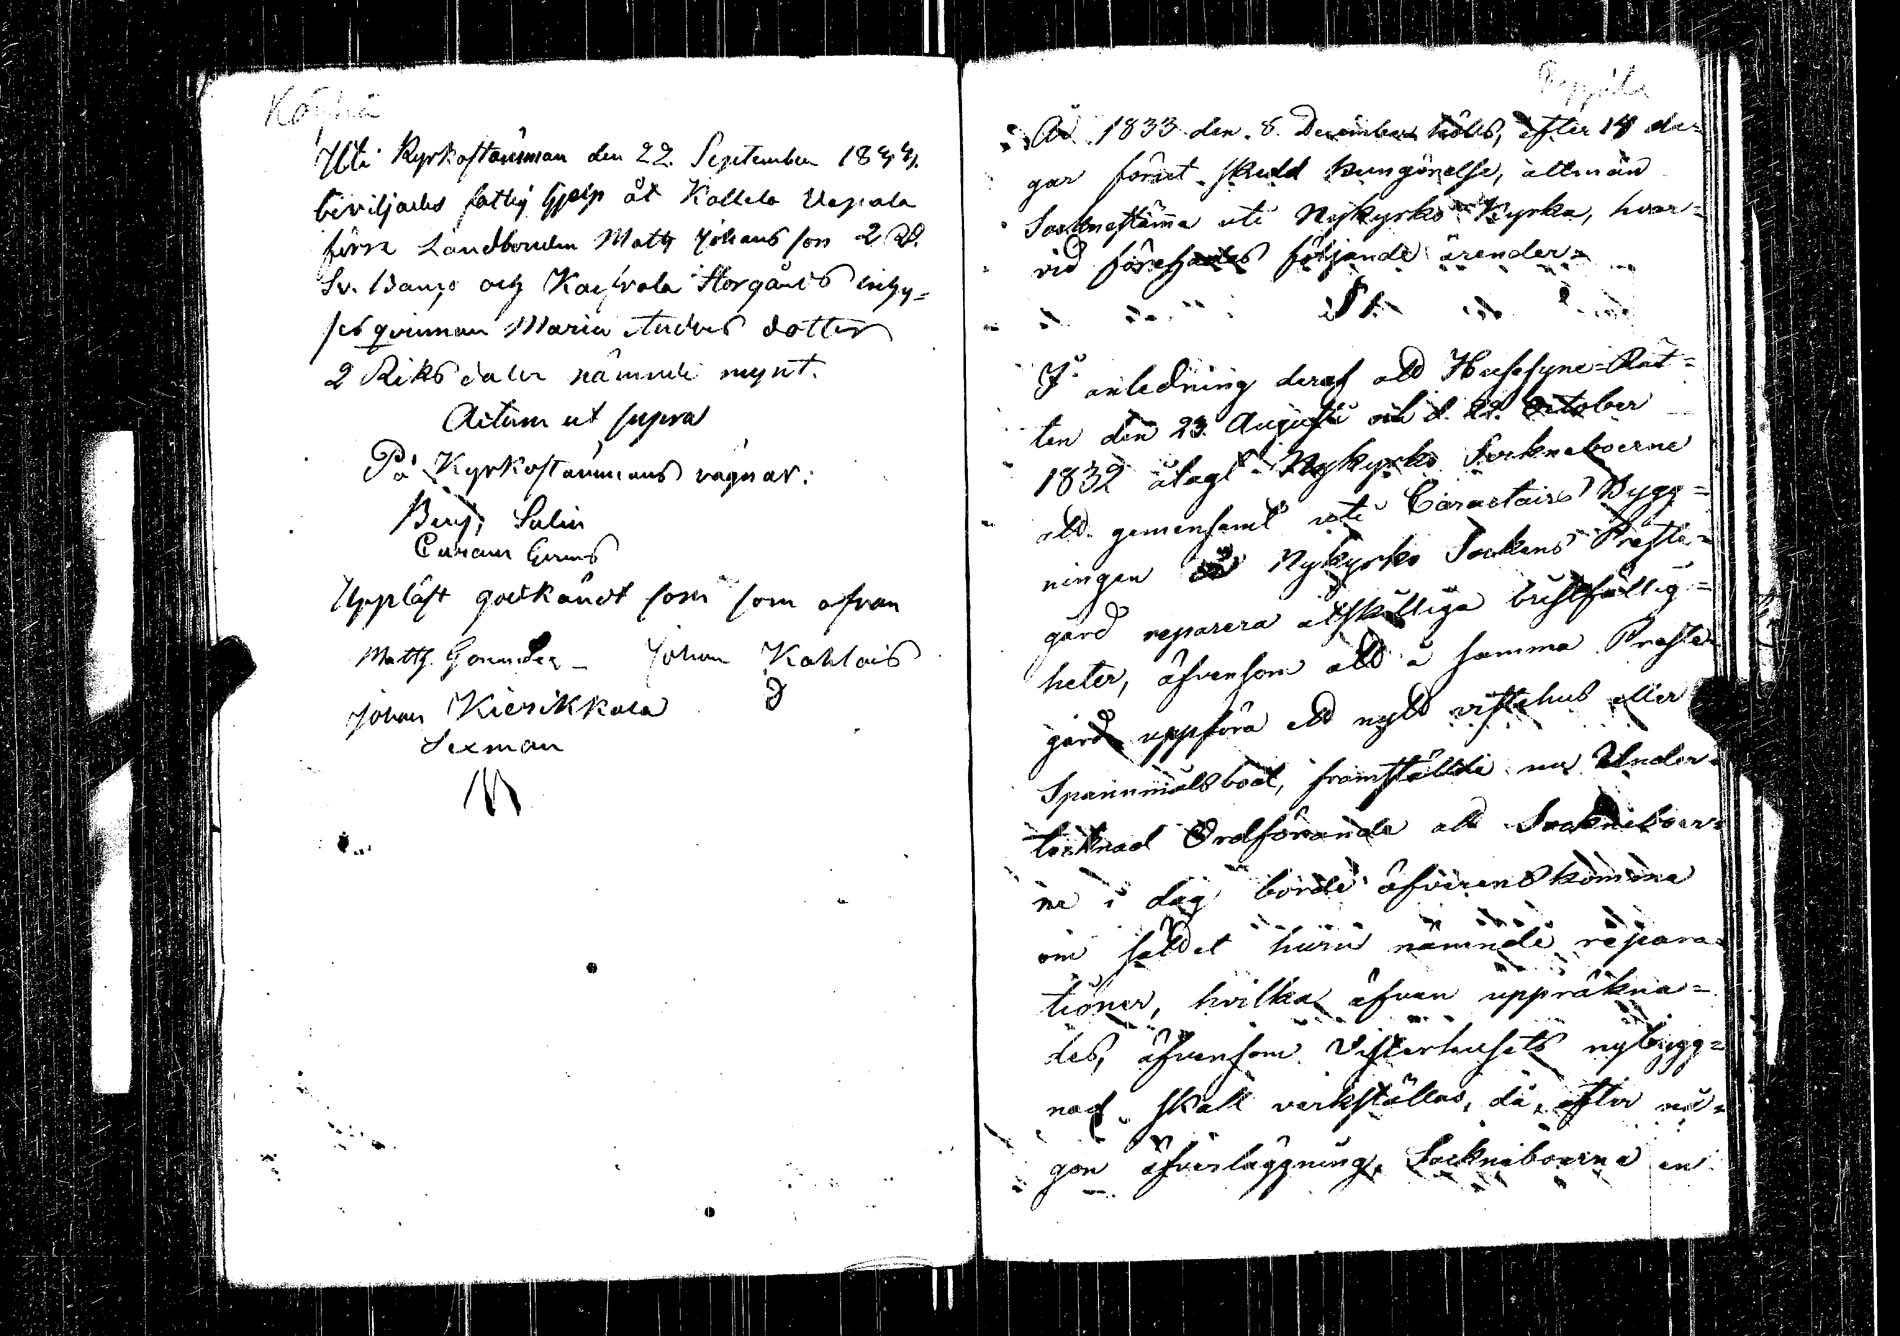 Uti Kyrkostämman den 22. September 1844.
beviljades fattig hjelp åt Kollela Uspala
förra Landbonden Matth Johans son 2 Rd.
Sv. Banco och Storgårds inhy=
ses qvinnan Maria Anders dotter
2 Riksdaler nämnde mynt.
Actum ut supra
På Kyrkostämmans vägnar:
Benj. Salin
Uppläst godkändt som som ofvan
Matth. Johan
Johan Kierikkala
Sexman
År 1833 den 8. December hölts, efter 14 da=
gar förut skedd kungörelse, allmän
Socknestämma uti Nykyrko Kyrka, hvar=
vid förehades följande ärender.
§ 1.
I anledning deraf att Husesyne=Rät=
ten den 23. Augusti och d. 22. October
1832 ålagt Nykyrko Sockneboerne
att gemensamt uti Caractairs Bygg=
ningen å Nykyrko Sockens Preste=
gård reparera åtskilliga bristfällig=
heter, äfvensom att å samma Preste=
gård uppföra ett nytt vistehus eller
Spannmålsbod, framställde nu Under=
tecknad Ordförande att Sockneboer=
ne i dag borde öfverenskomma
om sättet huru nämnde repara=
tioner, hvilka äfven uppräkna=
des, äfvensom Visterhusets nybygg=
nad skall verkställas, då, efter nå=
gon öfverläggning, Socknéboerna en